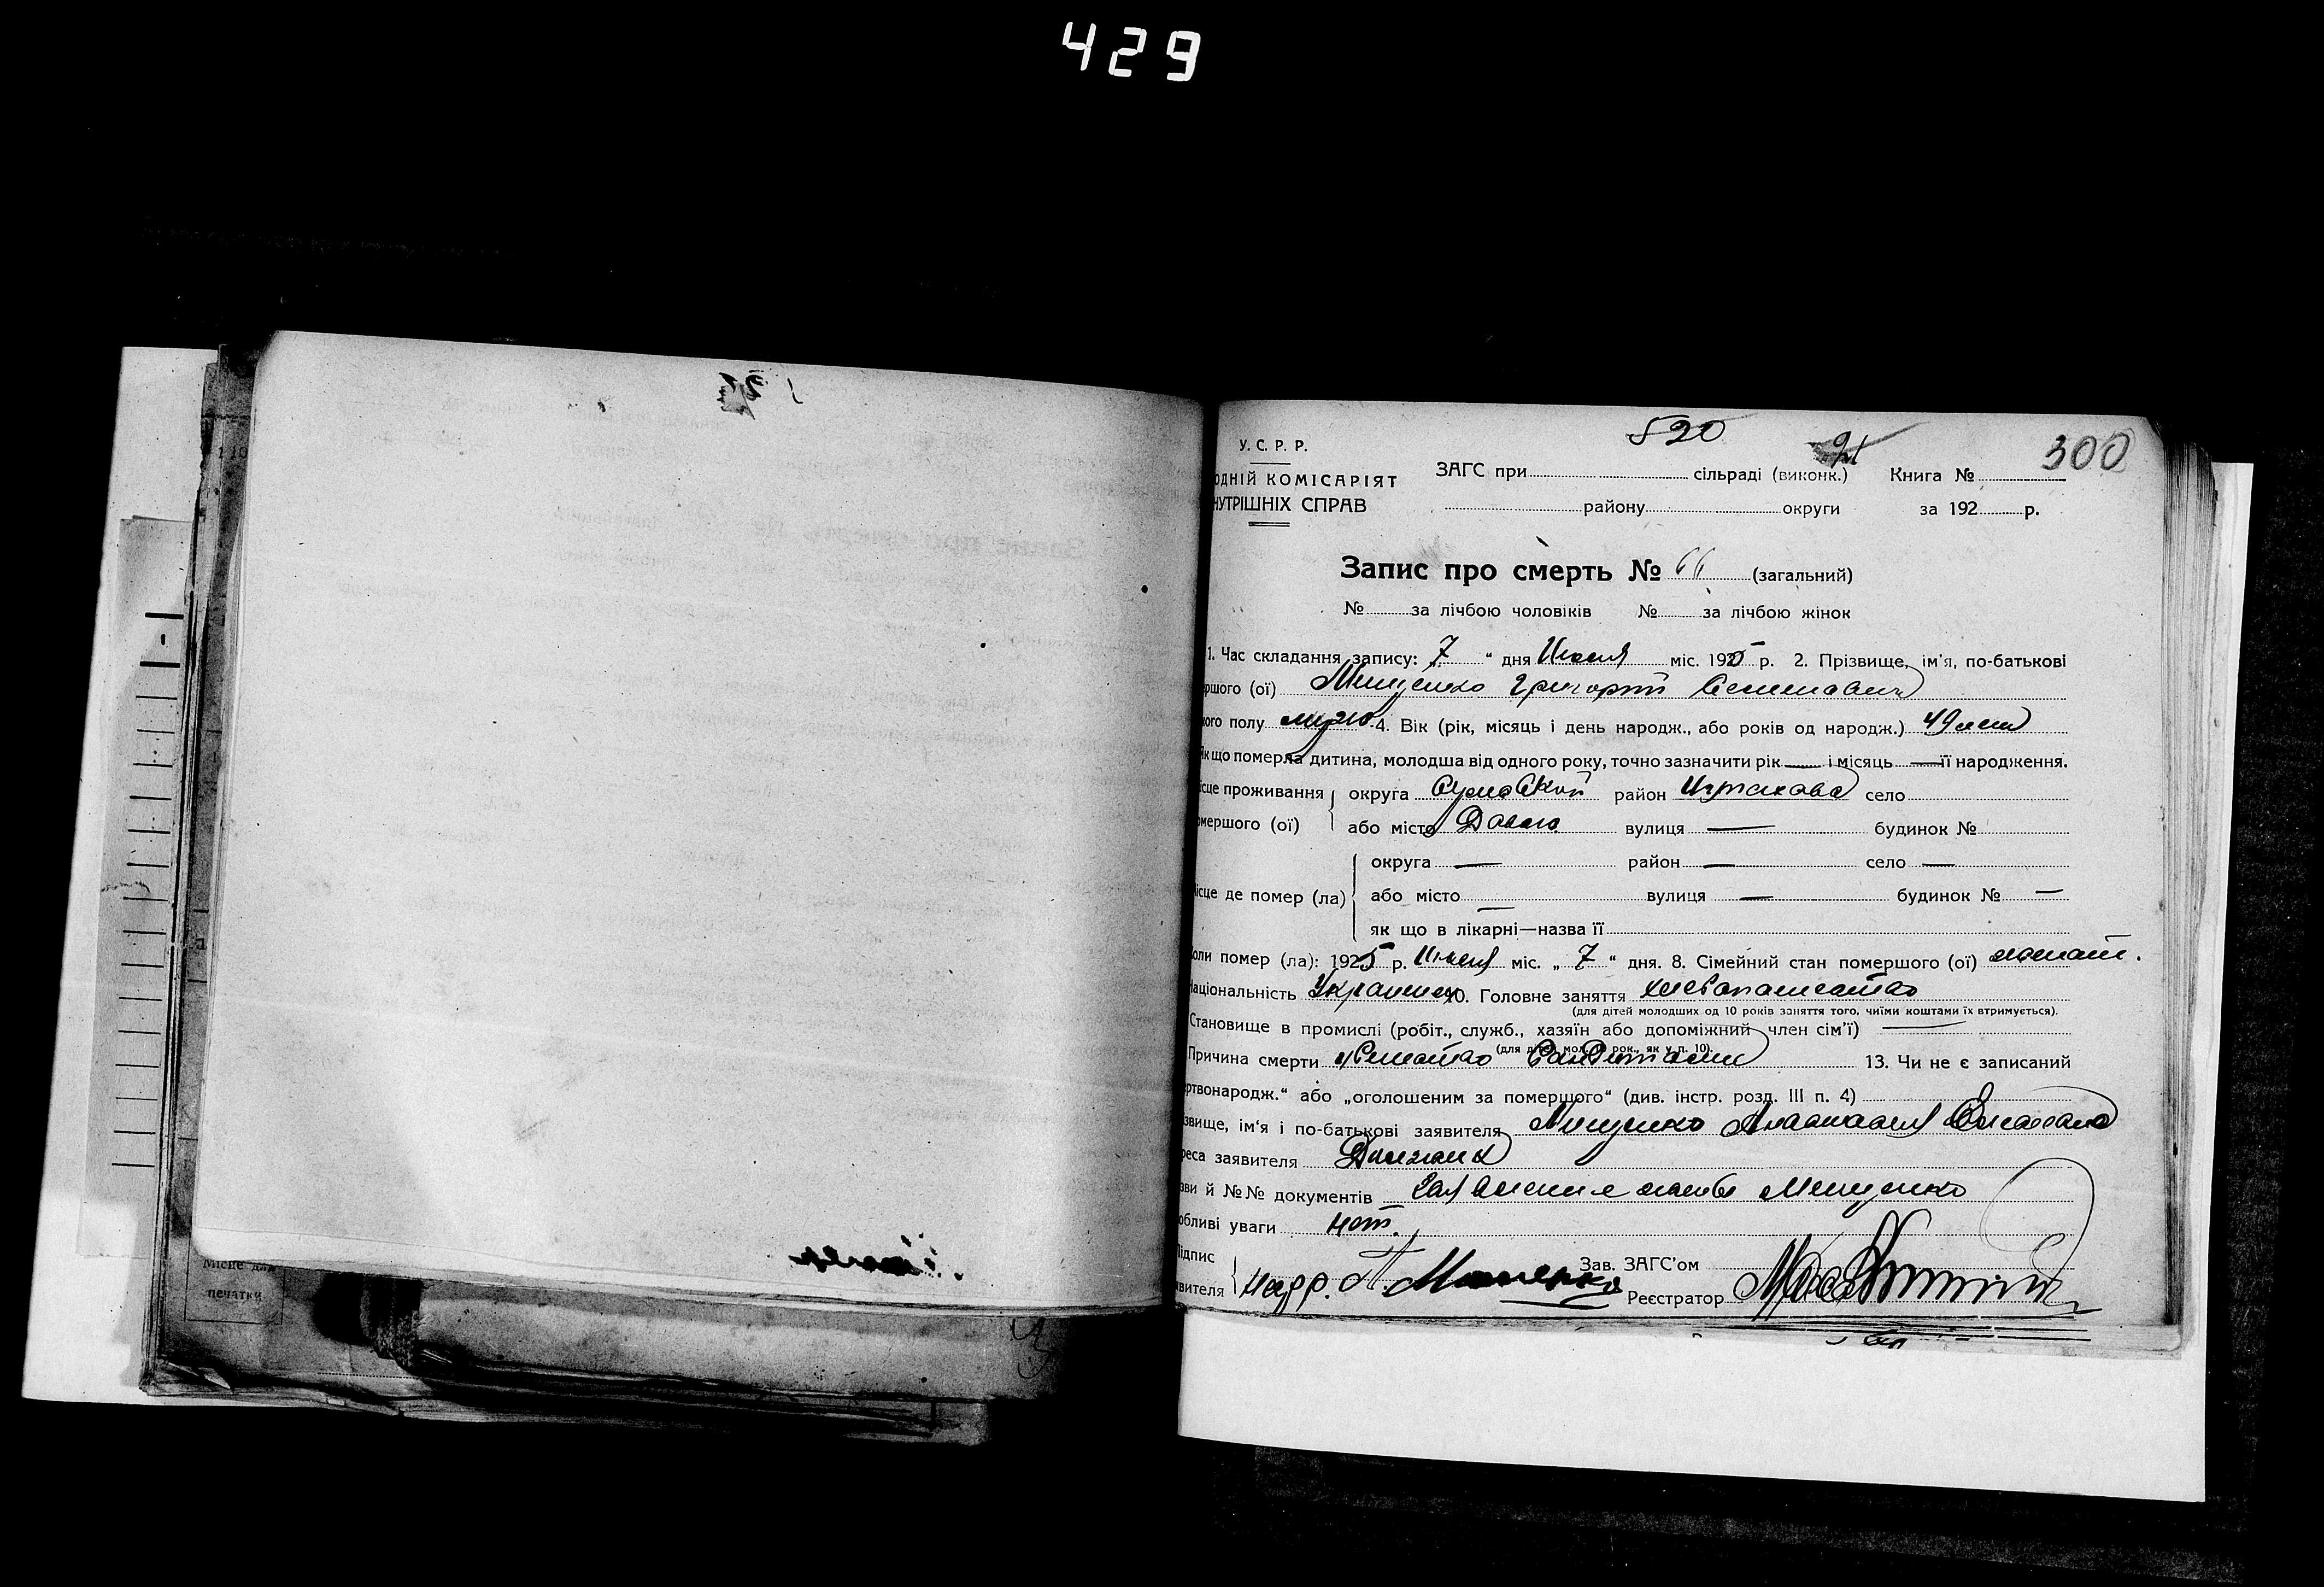 429
520
300
У. С. Р. Р.
ОДНІЙ КОМІСАРІЯТ
НУТРІШНІХ СПРАВ
ЗАГС при сільраді (виконк.) Книга №
району округи за 192 р.
Запис про смерть № 66 (загальний)
№ за лічбою чоловіків № за лічбою жінок
1. Час складання запису: „ 7 “ дня Июля міс. 1925 р. 2. Прізвище, ім'я, по-батькові
ршого (ої) Мищенко Григорий
кого полу муж. 4. Вік (рік, місяць і день народж., або років од народж.) 49 лет
Якщо померла дитина, молодша від одного року, точно зазначити рік — і місяць — її народження.
ісце проживання округа Сумской район село
омершого (ої) або місто вулиця — будинок №
округа — район — село —
ісце де помер (ла) або місто вулиця — будинок № —
як що в лікарні—назва її
оли помер (ла): 1925 р. Июля міс. „ 7 “ дня. 8. Сімейний стан помершого (ої) женат.
Національність Украинец 10. Головне заняття хлебопашество
(для дітей молодших од 10 років заняття того, чиїми коштами їх втримується).
Становище в промислі (робіт., служб., хазяїн або допоміжний член сім'ї) —
(для дітей мол. 10 рок., як у п. 10).
Причина смерти 13. Чи не є записаний
ртвонародж.“ або „оголошеним за помершого“ (див. інстр. розд. III п. 4)
звище, ім'я і по-батькові заявителя Мищенко
реса заявителя
зви й №№ документів Заявление жены Мищенко
обливі уваги нет.
Підпис
Зав. ЗАГС'ом
явителя
Реєстратор
Місце для
печатки